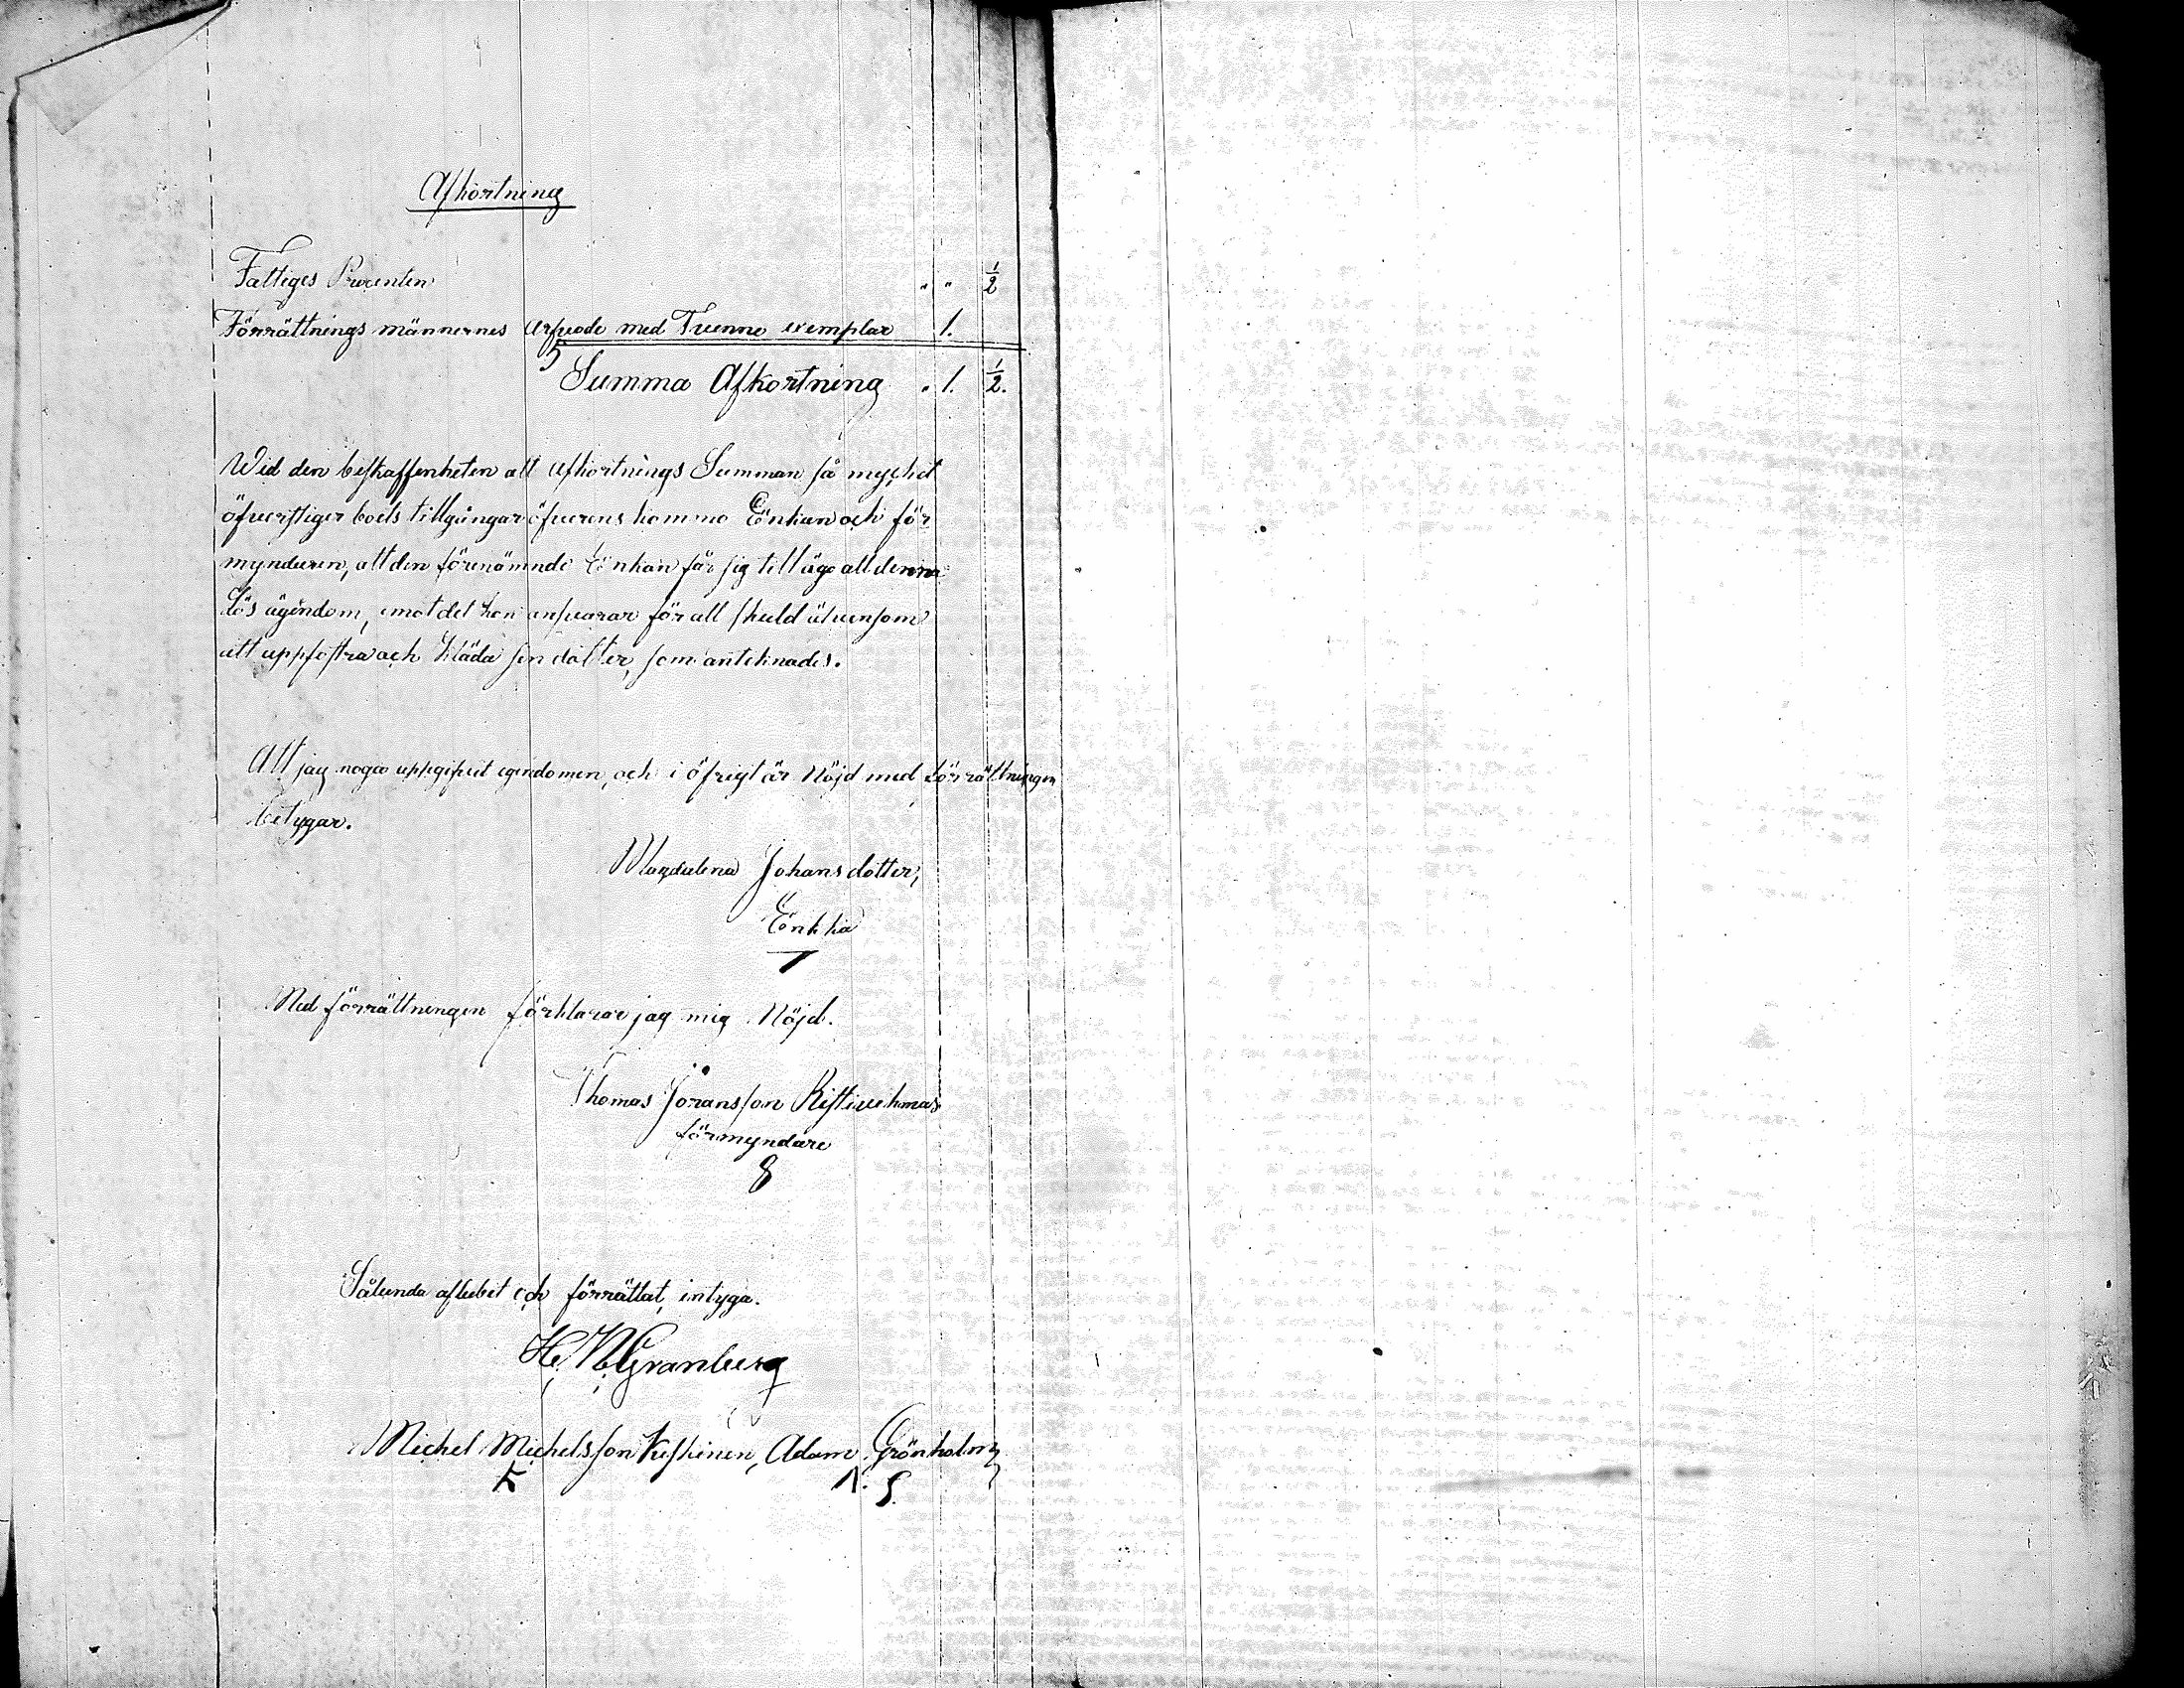 Afkortning
Fattiges Procenten " " 1/2
Förrättnings männernes arfvode med Tvenne exemplar 1.
Summa Afkortning " 1. 1/2.
Wid den beskaffenheten att Afkortnings Summan så mycket
öfverstiger boets tillgångar öfverens kommo Enkan och för
myndaren, att den förenämnde Enkan får sig till äga all denna
lös ägendom, emot det hon ansvarar för all skuld äfvensom
att uppfostra och kläda sin dotter, som anteknades.
Att jag noga uppgifvit egendomen, och i öfrigt är Nöjd med förrättningen
betygar.
Magdalena Johansdotter,
Enkka
Med förrättningen förklarar jag mig Nöjd.
Thomas Jöransson Ristivehmas
förmyndare
Sålunda aflubit och förrättat, intyga.
H. N. Granberg
Michel Michelsson Keskinen, Adam Grönholm
K A. G.